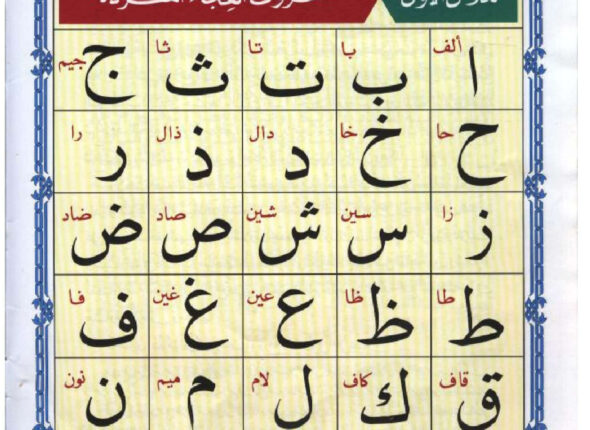 ا ألف ب با ت تا ث ثا ج جيم
ح حا خ خا د دال ذ ذال ر را
ز زا س سين ش شين ص صاد ض ضاد
ط طا ظ ظا ع عين غ غين ف فا
ق قاف ك كاف ل لام م ميم ن نون